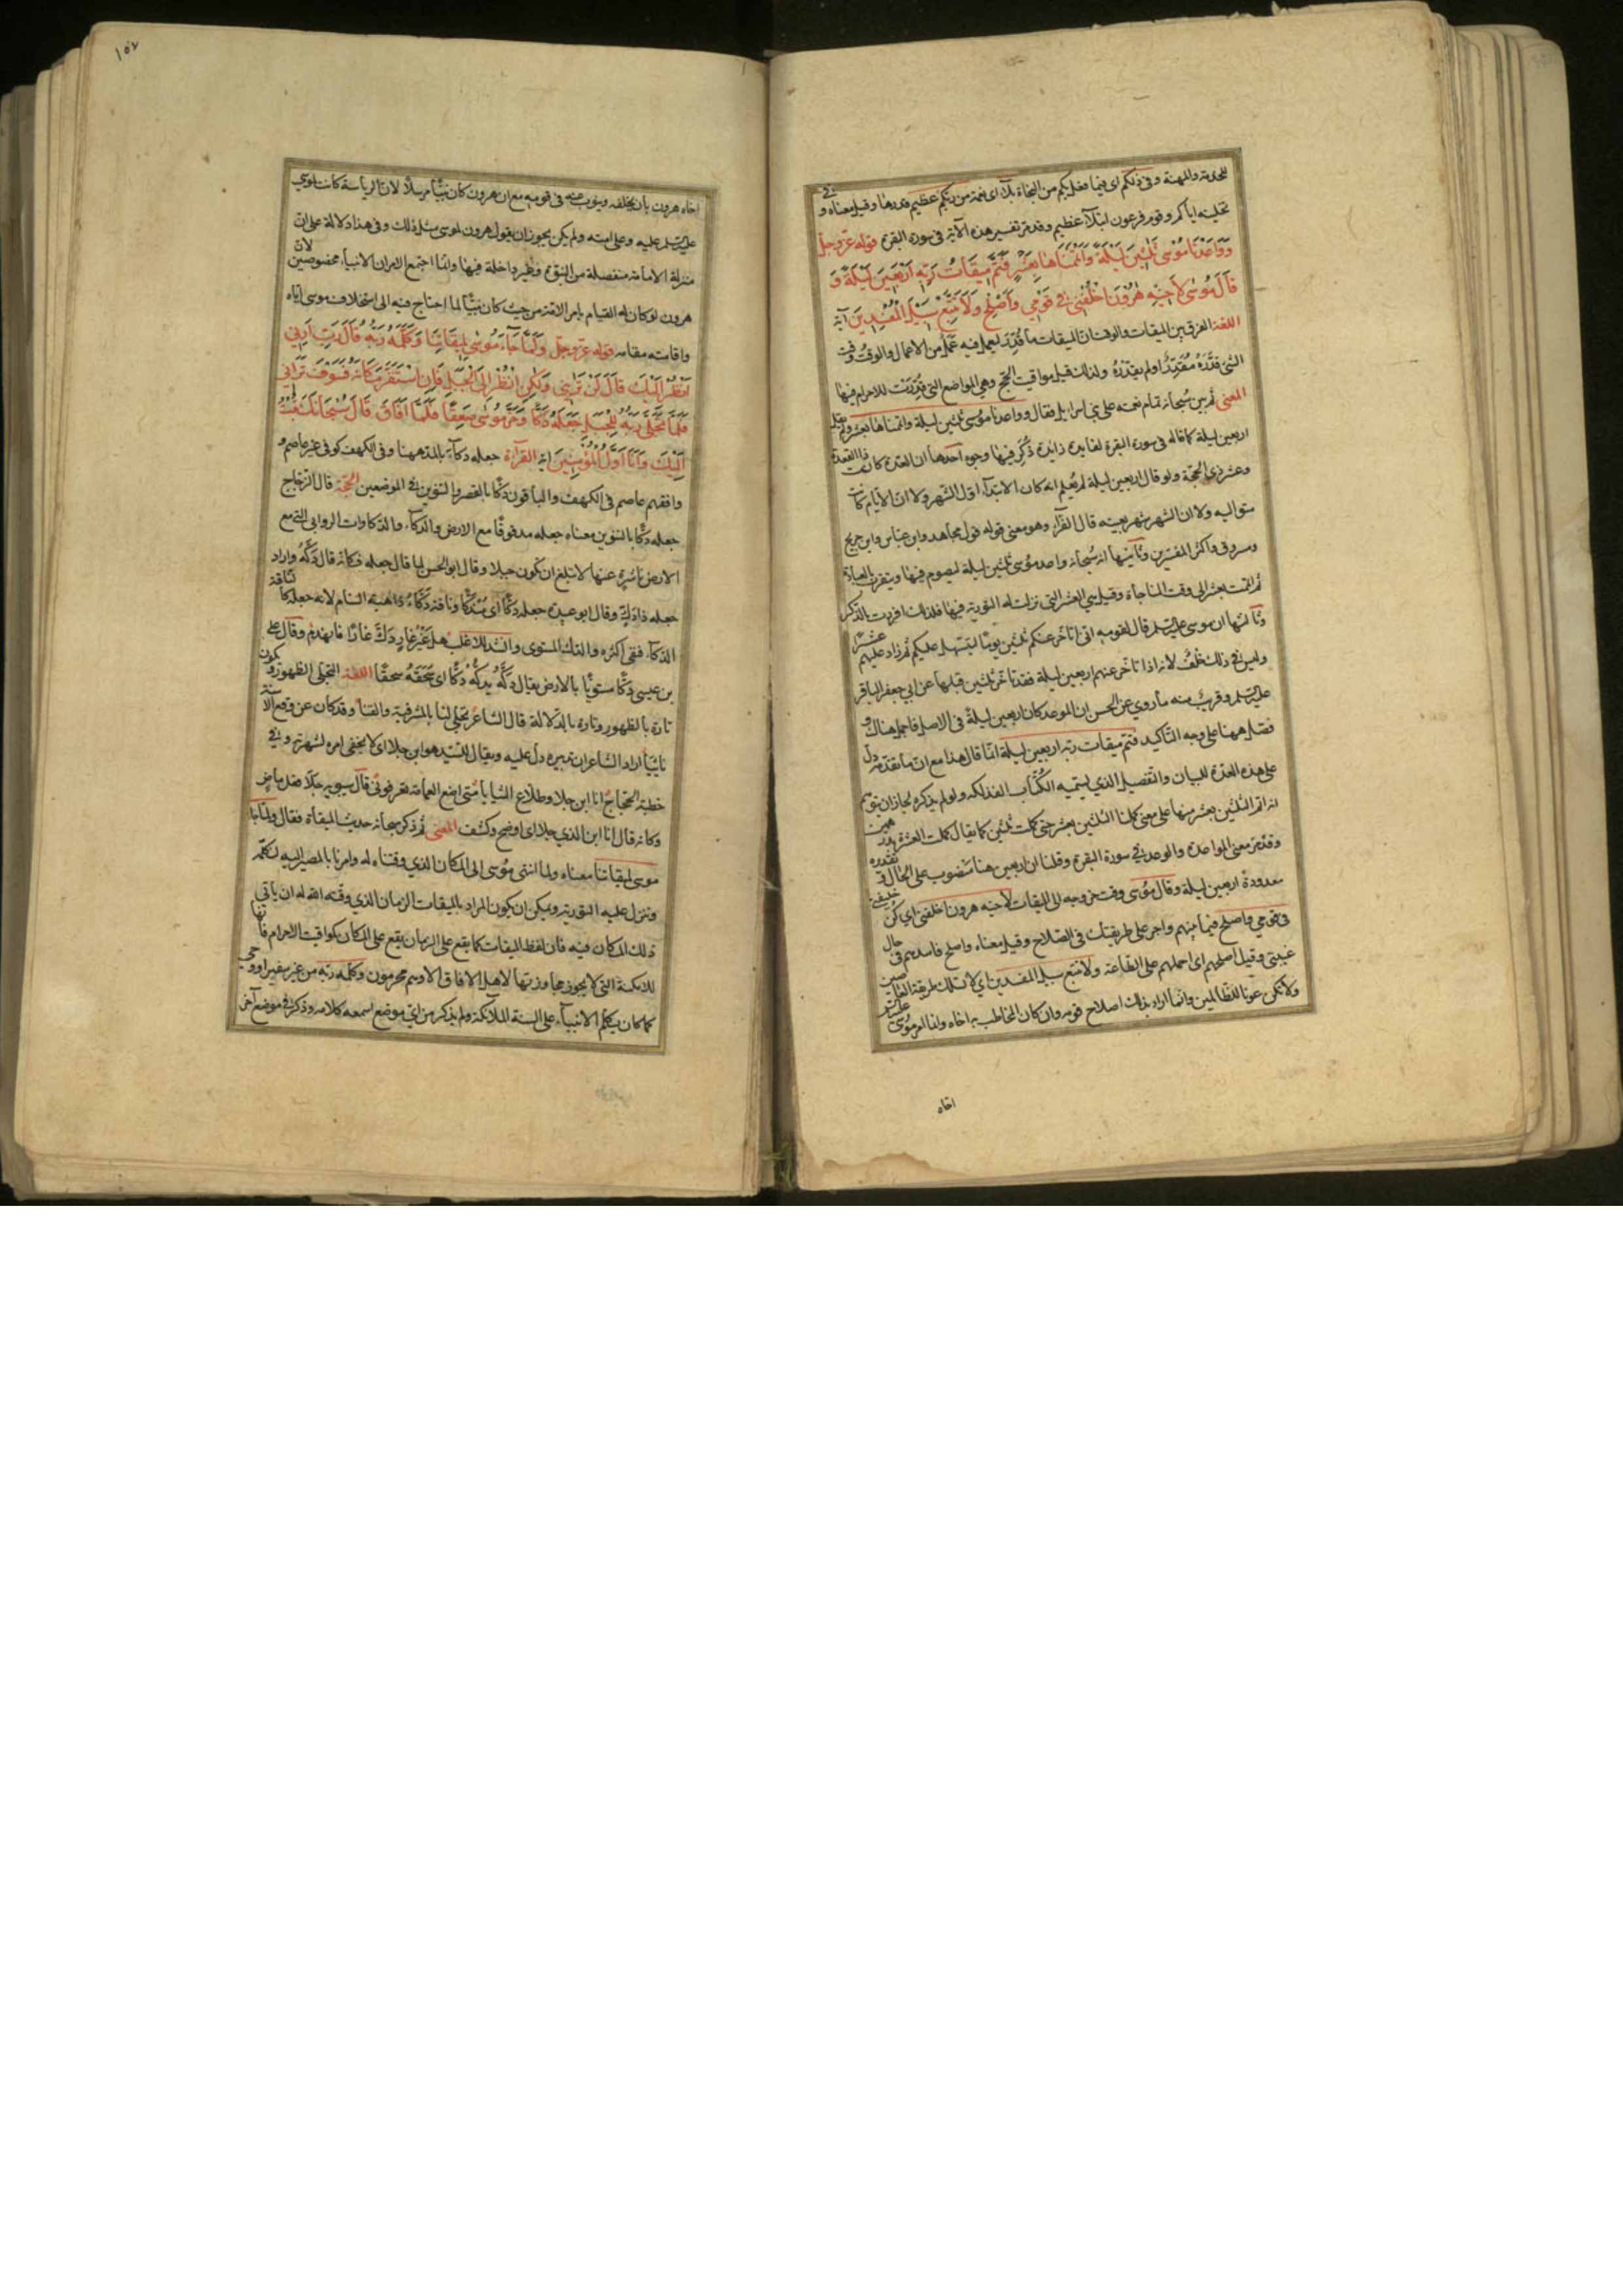 للخدمة والمهنة وفي ذلكم اى فيما فعل بكم من النجاة بلاء اى نعمة من ربكم عظيم قدرها وقيل معناه وفي
تخليته اياكم وقوم فرعون ابتلاء عظيم وقد مر تفسير هذه الآية فى سورة البقرة قوله عز وجل
وَوَاعَدْنَا مُوسٰى ثَلٰثِينَ لَيْلَةً وَاَتْمَمْنَاهَا بِعَشْرٍ فَتَمَّ مِيقَاتُ رَبِّهِ اَرْبَعِينَ لَيْلَةً وَ
قَالَ مُوسٰى لِاَخِيْهِ هٰرُونَ اخْلُفْنِى فِي قَوْمِي وَاَصْلِحْ وَلَا تَتَّبِعْ سَبِيْلَ الْمُفْسِدِينَ آية
اللغة الفرق بين الميقات والوقت ان الميقات ما قُدِّرَ ليعمل فيه عَمَلٌ من الاعمال والوقتُ وقت
الشئ قَدَّرَهُ مُقَدِّرٌ او لم يقدّرهُ ولذلك قيل مواقيت الحج وهي المواضع التى قُدِّرَت للاحرام فيها
المعنى ثم بين سُبحانه تمام نعمته على بني اسرايل فقال وواعدنا موسى ثلثين ليلة واتممناها بعشر ولم يقل
اربعين ليلة كما قاله فى سورة البقرة لفايدة زايدة ذُكِرَ فيها وجوه احدها ان العدة كانت ذا القعدة
وعشر ذي الحجّة ولو قال اربعين ليلة لم يُعلم انه كان الابتداء اول الشهر ولا ان الايام كانت
متواليه ولا ان الشهر شهر بعينه قال الفرّاء وهو معنى قوله قول مجاهد وابن عباس وابن جريج
ومسروق واكثر المفسرين وثانيها انه سُبحانه واعد موسى ثلثين ليلة ليصوم فيها ويتقرب بالعبادة
ثم اتمت بعشر الى وقت المناجاة وقيل هي العشر التى نزلت له التورية فيها فلذلك افردت بالذكر
وثالثها ان موسى عليه السلم قال لقومه انى اتأخر عنكم ثلثين يومًا ليتسهل عليكم ثم زاد عليهم عشرًا
وليس في ذلك خُلفٌ لانه اذا تأخر عنهم اربعين ليلة فقد تأخر ثلثين قبلها عن ابي جعفر الباقر
عليه السلم وقريب منه ما روي عن الحسن ان الموعد كان اربعين ليلةً فى الاصل فاجمل هناك و
فصّل ههنا على وجه التأكيد فتم ميقات ربه اربعين ليلة انما قال هذا مع ان ما تقدمه دل
على هذه العدة للبيان والتفصيل الذي يسميه الكُتّاب الفذلكة ولو لم يذكره لجاز ان يتوهم
انه اتم الثلثين بعشر منها على معنى كملنا الثلثين بعشر حتى كملت ثلثين كما يقال كملت العشرة بدرهمين
وقد مر معنى المواعدة والوعد في سورة البقرة وقلنا ان اربعين هنا منصوب على الحال وتقديره
معدودة اربعين ليلة وقال موسى وقت خروجه الى الميقات لاخيه هرون اخلفنى اي كن خليفتى
فى قومي واصلح فيما بينهم واجر على طريقتك فى الصلاح وقيل معناه واصلح فاسدهم فى حال
غيبتى وقيل اصلحهم اى احملهم على الطاعة ولا تتبع سبيل المفسدين اي لا تسلك طريقة العاصين
ولا تكن عونا للظالمين وانما اراد بذلك اصلاح قومه وان كان المخاطب به اخاه وانما امر موسى عليه السلم
اخاه
١٥٧
اخاه هرون بان يخلفه وينوب عنه فى قومه مع ان هرون كان نبيًّا مرسلًا لان الرياسة كانت لموسى
عليه السلم عليه وعلى امته ولم يكن يجوز ان يقول هرون لموسى مثل ذلك وفى هذا دلالة على ان
منزلة الامامة منفصلة من النبوة وغير داخلة فيها وانما اجتمع الامران لانبياء مخصوصين لان
هرون لو كان له القيام بامر الامة من حيث كان نبيًّا لما احتاج فيه الى استخلاف موسى اياه
واقامته مقامه قوله عز وجل وَلَمَّا جَآءَ مُوسٰى لِمِيقَاتِنَا وَكَلَّمَهُ رَبُّهُ قَالَ رَبِّ اَرِنِي
اَنْظُرْ اِلَيْكَ قَالَ لَنْ تَرٰىنِي وَلٰكِنِ انْظُرْ اِلَى الْجَبَلِ فَاِنِ اسْتَقَرَّ مَكَانَهُ فَسَوْفَ تَرٰانِي
فَلَمَّا تَجَلّٰى رَبُّهُ لِلْجَبَلِ جَعَلَهُ دَكًّا وَخَرَّ مُوسٰى صَعِقًا فَلَمَّا اَفَاقَ قَالَ سُبْحَانَكَ تُبْتُ
اِلَيْكَ وَاَنَا اَوَّلُ الْمُؤْمِنِينَ اية القرآءة جعله دكآء بالمد ههنا وفى الكهف كوفى غير عاصم و
وافقهم عاصم فى الكهف والباقون دكًّا بالقصر والتنوين فى الموضعين الحجّة قال الزجاج
جعله دكًّا بالتنوين معناه جعله مدقوقًا مع الارض والدكاء والدكاوات الروابى التى مع
الارض ناشزة عنها لا تبلغ ان تكون جبلا وقال ابو الحسن لما قال جعله فكانه قال دَكَّهُ واراد
جعله ذا دَكٍّ وقال ابو عبيدة جعله دَكًّا اى مُنْدَكًّا وناقة دَكَّاءُ ذاهبة السنام لانه جعله كالناقة
الدكاء فبقى اكثره والدك المستوى وانشد للاغلب هل غَيْرُ غَارٍ دَكَّ غَارًا فانهدم وقال على
بن عيسى دكًّا مستويًا بالارض يقال دَكَّهُ يدكُّهُ دكًّا اى سَحَقَهُ سحقًا اللغة التجلى الظهور ويكون
تارة بالظهور وتارة بالدلالة قال الشاعر تجلى لنا بالمشرفية والقنا وقد كان عن وقع الاسنة
نائيا اراد الشاعر ان تدبيره دل عليه ويقال للسيد هو ابن جلا اى لا يخفى امره لشهرته وفى
خطبة الحجّاج انا ابن جلا وطلّاع الثنايا متى اضع العمامة تعرفونى قال سيبويه جلا فعل ماض
وكانه قال انا ابن الذي جلا اى اوضح وكشف المعنى ثم ذكر سبحانه حديث الميقات فقال ولما جاء
موسى لميقاتنا معناه ولما انتهى موسى الى المكان الذي وقتناه له وامرنا بالمصير اليه لنكلمه
وننزل عليه التورية ويمكن ان يكون المراد بالميقات الزمان الذي وقّته الله له ان يأتى
ذلك المكان فيه فان لفظ الميقات كما يقع على الزمان يقع على المكان كمواقيت الاحرام فانها
للامكنة التى لا يجوز مجاوزتها لاهل الافاق الا وهم محرمون وكلمه ربه من غير سفير او وحى
كما كان يكلم الانبياء على السنة الملائكة ولم يذكر من اي موضع اسمعه كلامه وذكر فى موضع آخر